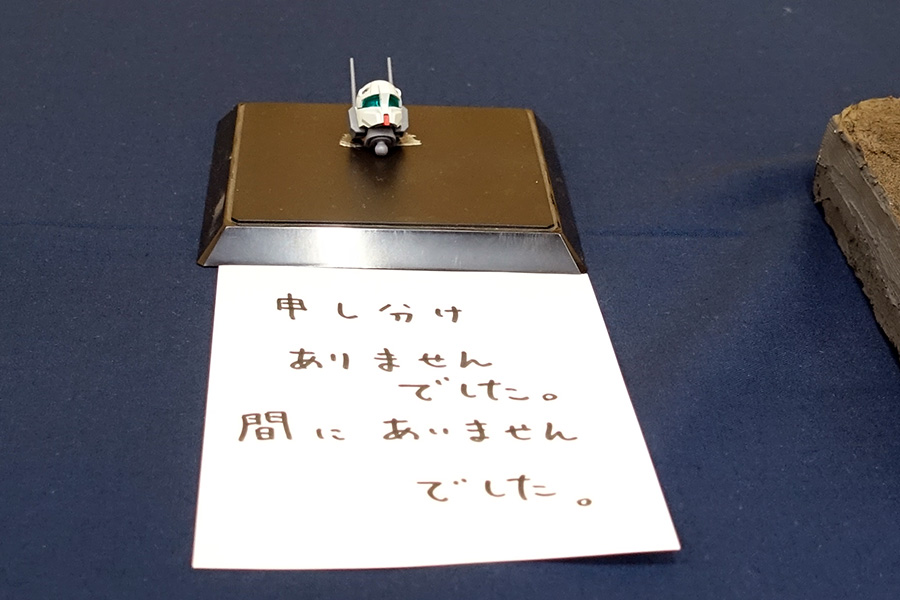 申し分け
ありません
でした。
間にあいません
でした。